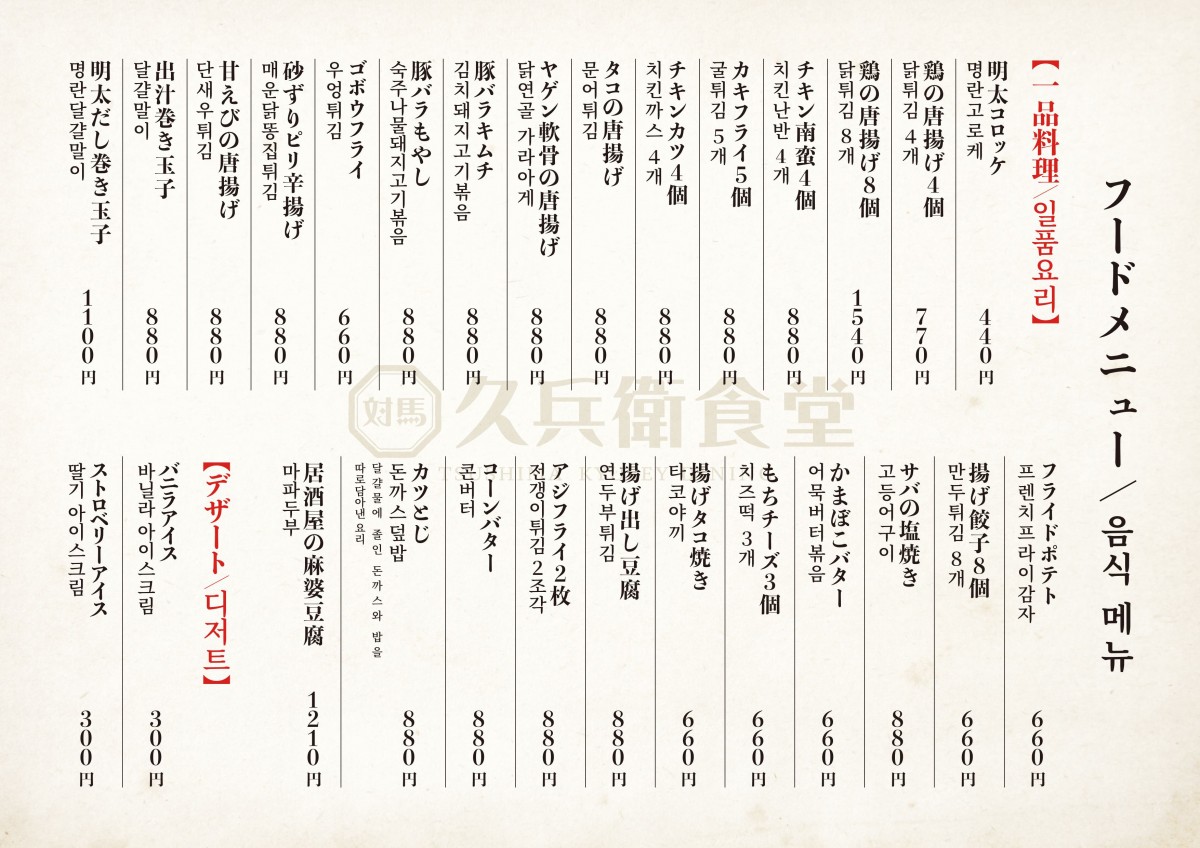 フードメニュー／음식 메뉴
【一品料理／일품요리】
明太コロッケ
명란고로케
440円
鶏の唐揚げ4個
닭튀김 4개
770円
鶏の唐揚げ8個
닭튀김 8개
1540円
チキン南蛮4個
치킨난반 4개
880円
カキフライ5個
굴튀김 5개
880円
チキンカツ4個
치킨까스 4개
880円
タコの唐揚げ
문어튀김
880円
ヤゲン軟骨の唐揚げ
닭연골 가라아게
880円
豚バラキムチ
김치돼지고기볶음
880円
豚バラもやし
숙주나물돼지고기볶음
880円
ゴボウフライ
우엉튀김
660円
砂ずりピリ辛揚げ
매운닭똥집튀김
880円
甘えびの唐揚げ
단새우튀김
880円
出汁巻き玉子
달걀말이
880円
明太だし巻き玉子
명란달걀말이
1100円
フライドポテト
프렌치프라이감자
660円
揚げ餃子8個
만두튀김 8개
660円
サバの塩焼き
고등어구이
880円
かまぼこバター
어묵버터볶음
660円
もちチーズ3個
치즈떡 3개
660円
揚げタコ焼き
타코야끼
660円
揚げ出し豆腐
연두부튀김
880円
アジフライ2枚
전갱이튀김 2조각
880円
コーンバター
콘버터
880円
カツとじ
돈까스덮밥
달걀물에 졸인 돈까스와 밥을
따로담아낸요리
880円
居酒屋の麻婆豆腐
마파두부
1210円
【デザート／디저트】
バニラアイス
바닐라 아이스크림
300円
ストロベリーアイス
딸기 아이스크림
300円
対馬
久兵衛食堂